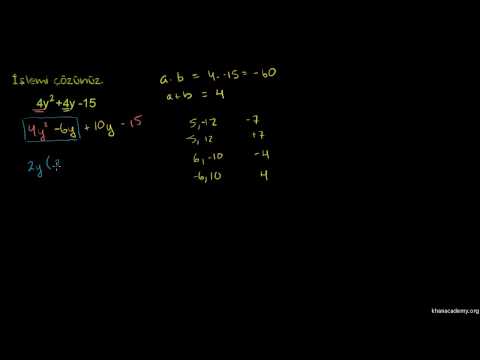 İşlemi çözünüz.
4y²+4y -15
4y² -6y +10y - 15
2y (2
a · b = 4 · -15 = -60
a+b = 4
5, -12 -7
-5, 12 +7
6, -10 -4
-6, 10 4
khanacademy.org